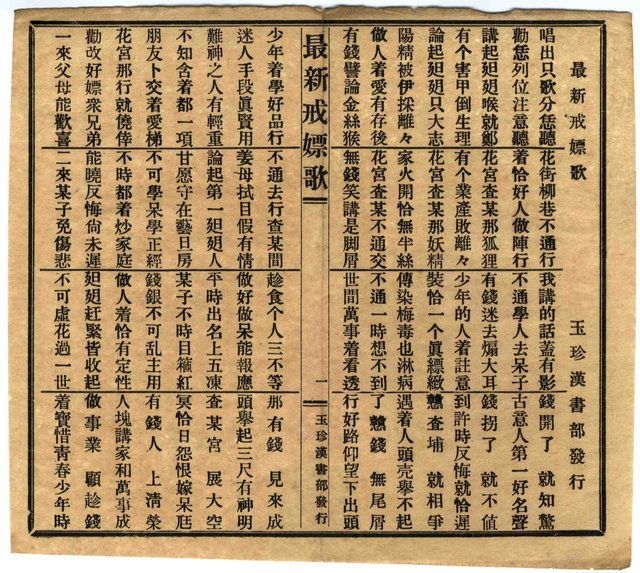 最新戒嫖歌 玉珍漢書部發行
唱出只歌分恁聽 花街柳巷不通行 我講的話蓋有影 錢開了 就知驚
勸恁列位注意聽 着恰好人做陣行 不通學人去呆子 古意人第一好名聲
講起喉就鄭 花宮查某那狐狸 有錢迷去煽大耳 錢拐了 就不値
有个害甲倒生理 有个業產敗離々 少年的人着註意 到許時反悔就恰遲
論起只大志 花宮查某那妖精 裝恰一个眞縹緻 戇查埔 就相爭
陽精被伊採離々 家火開恰無半絲 傳染梅毒也淋病 遇着人頭壳舉不起
做人着愛有存後 花宮查某不通交 不通一時想不到 了戇錢 無尾屑
有錢譬論金絲猴 無錢笑講是脚屑 世間萬事着看透 行好路仰望下出頭
最新戒嫖歌 一 玉珍漢書部發行
少年着學好品行 不通去行查某間 趁食个人三不等 那有錢 見來成
迷人手段眞賢用 姜母拭目假有情 做好做呆能報應 頭舉起三尺有神明
難神之人有輕重 論起第一人 平時出名上五凍 查某宮 展大空
不知含着都一項 甘愿守在藝旦房 某子不時目箍紅 冥恰日怨恨嫁呆尫
朋友卜交着愛梯 不可學呆學正經 錢銀不可乱主用 有錢人 上淸榮
花宮那行就僥倖 不時都着炒家庭 做人着恰有定性 人塊講家和萬事成
勸改好嫖衆兄弟 能曉反悔尙未遲 赶緊皆收起 做事業 顧趁錢
一來父母能歡喜 二來某子免傷悲 不可虛花過一世 着寶惜靑春少年時